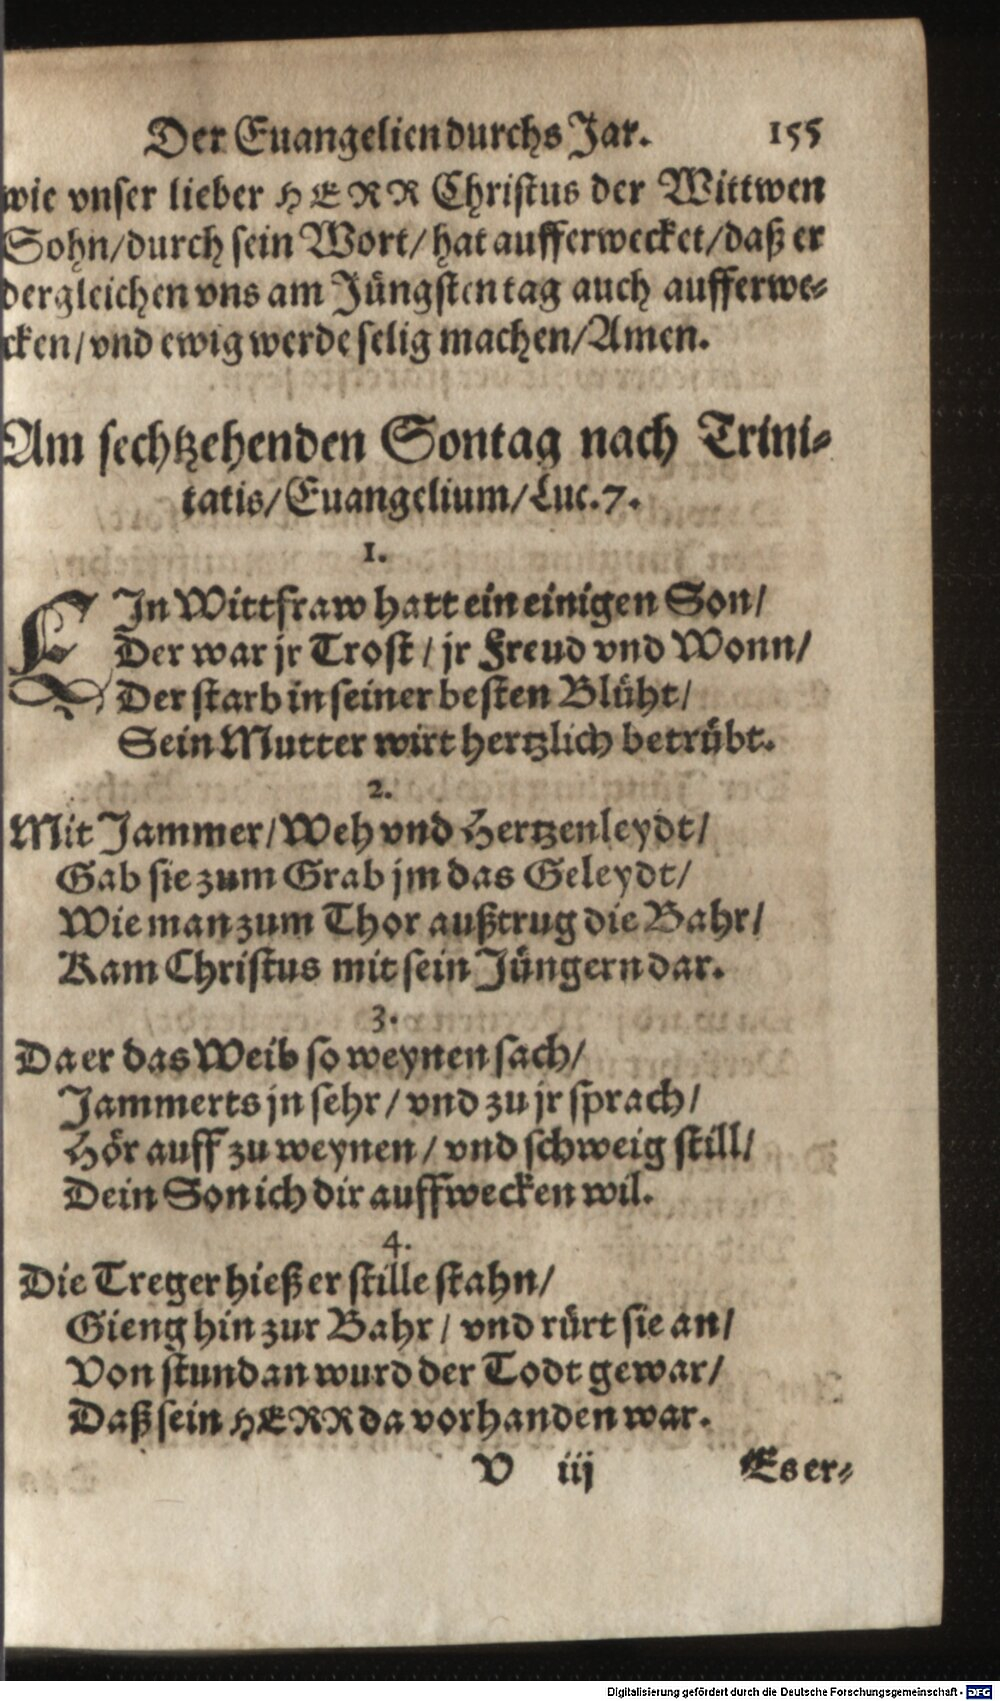 Der Euangelien durchs Jar. 155
wie vnser lieber HERR Christus der Wittwen
Sohn/durch sein Wort/hat aufferwecket/daß er
dergleichen vns am Jüngsten tag auch aufferwe-
cken/vnd ewig werde selig machen/Amen.
Am sechtzehenden Sontag nach Trini-
tatis/Euangelium/Luc.7.
1.
EIn Wittfraw hatt ein einigen Son/
Der war jr Trost/jr Freud vnd Wonn/
Der starb in seiner besten Blüht/
Sein Mutter wirt hertzlich betrübt.
2.
Mit Jammer/Weh vnd Hertzenleydt/
Gab sie zum Grab jm das Geleydt/
Wie man zum Thor außtrug die Bahr/
Kam Christus mit sein Jüngern dar.
3.
Da er das Weib so weynen sach/
Jammerts jn sehr/vnd zu jr sprach/
Hör auff zu weynen/vnd schweig still/
Dein Son ich dir auffwecken wil.
4.
Die Treger hieß er stille stahn/
Gieng hin zur Bahr/vnd rürt sie an/
Von stund an wurd der Todt gewar/
Daß sein HERR da vorhanden war.
V iij Es er-
Digitalisierung gefördert durch die Deutsche Forschungsgemeinschaft - DFG